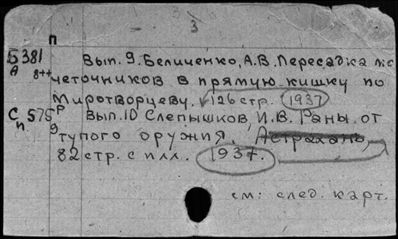 3
п
Б381 Вып. 9. Беличенко, А.В. Пересадка мо
А 8++ четочников в прямую кишку по
Миротворцеву. 126 стр. 1937
С 575 Р Вып. 10 Слепышков, И.В. Раны от
п 9 тупого оружия. Астрахань,
82 стр. с илл. 1937.
см: след. карт.